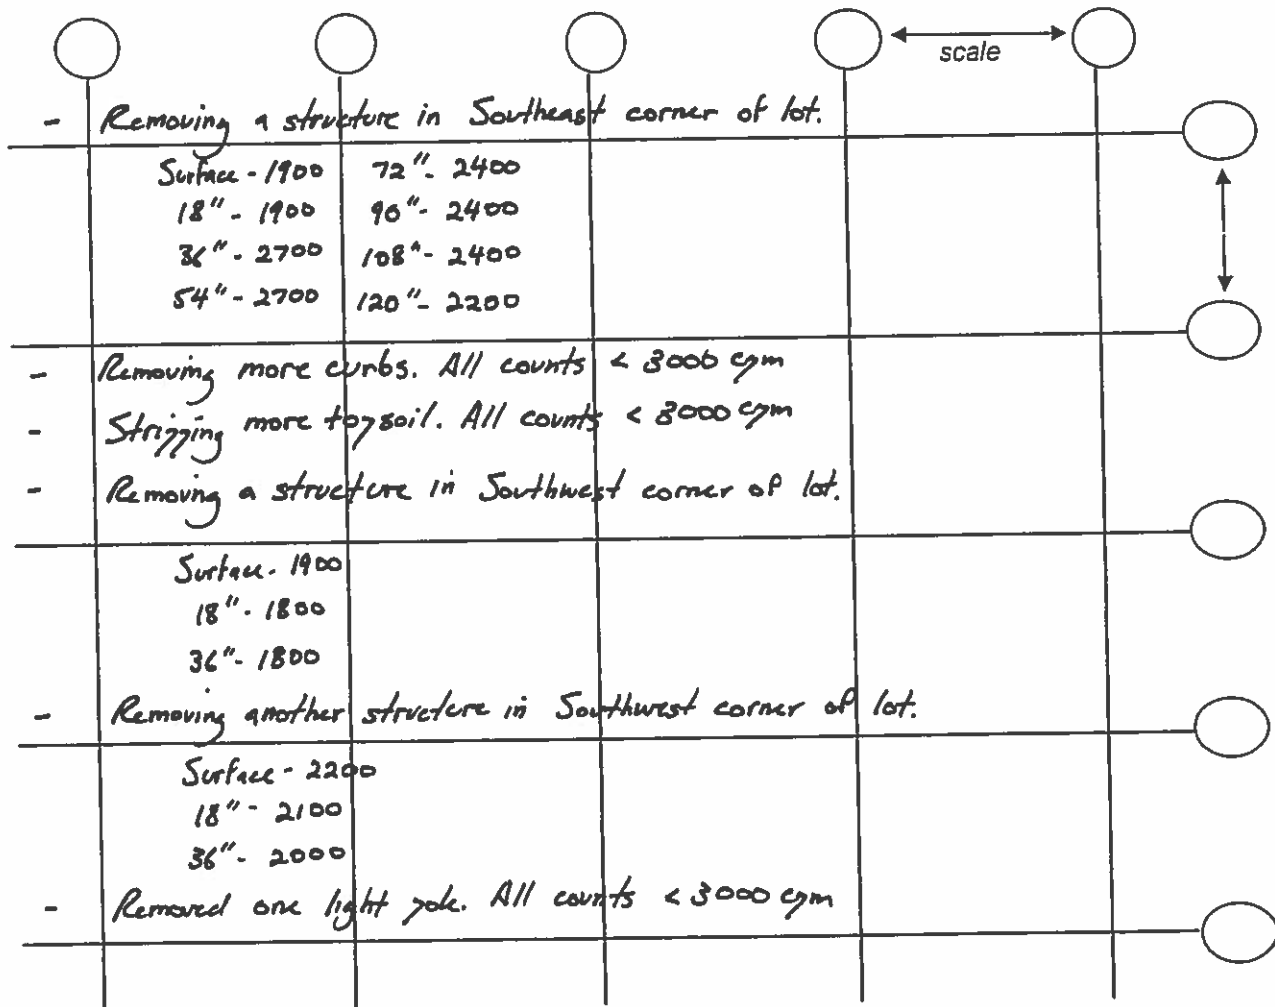 scale
- Removing a structure in Southeast corner of lot.
Surface - 1900 72" - 2400
18" - 1900 90" - 2400
36" - 2700 108" - 2400
54" - 2700 120" - 2200
- Removing more curbs. All counts < 3000 cpm
- Stripping more topsoil. All counts < 3000 cpm
- Removing a structure in Southwest corner of lot.
Surface - 1900
18" - 1800
36" - 1800
- Removing another structure in Southwest corner of lot.
Surface - 2200
18" - 2100
36" - 2000
- Removed one light pole. All counts < 3000 cpm